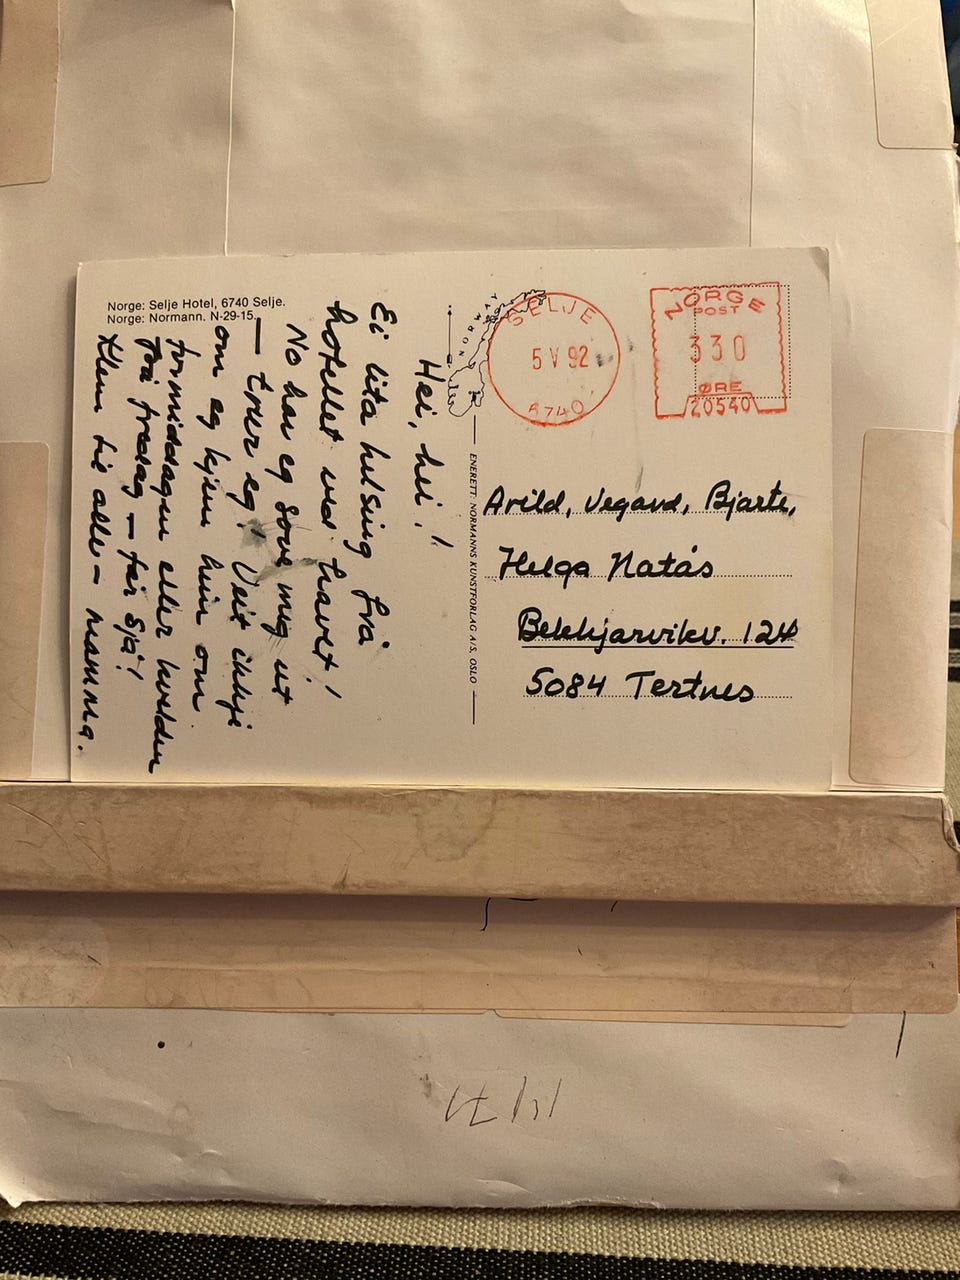 Norge: Selje Hotel, 6740 Selje.
Norge: Normann. N-29-15.
Hei, hei!
Ei lita helsing frå
hotellet ved havet!
No har eg sove meg ut
— trur eg! Veit ikkje
om eg kjem heim om
formiddagen eller kvelden
på fredag — får sjå!
Klem til alle – mamma.
NORWAY
ENERETT: NORMANNS KUNSTFORLAG A/S, OSLO
SELJE
5 V 92
6740
NORGE
POST
330
ØRE
20540
Arild, Vegard, Bjarte,
Helga Natås
Bekkjarvikv. 124
5084 Tertnes